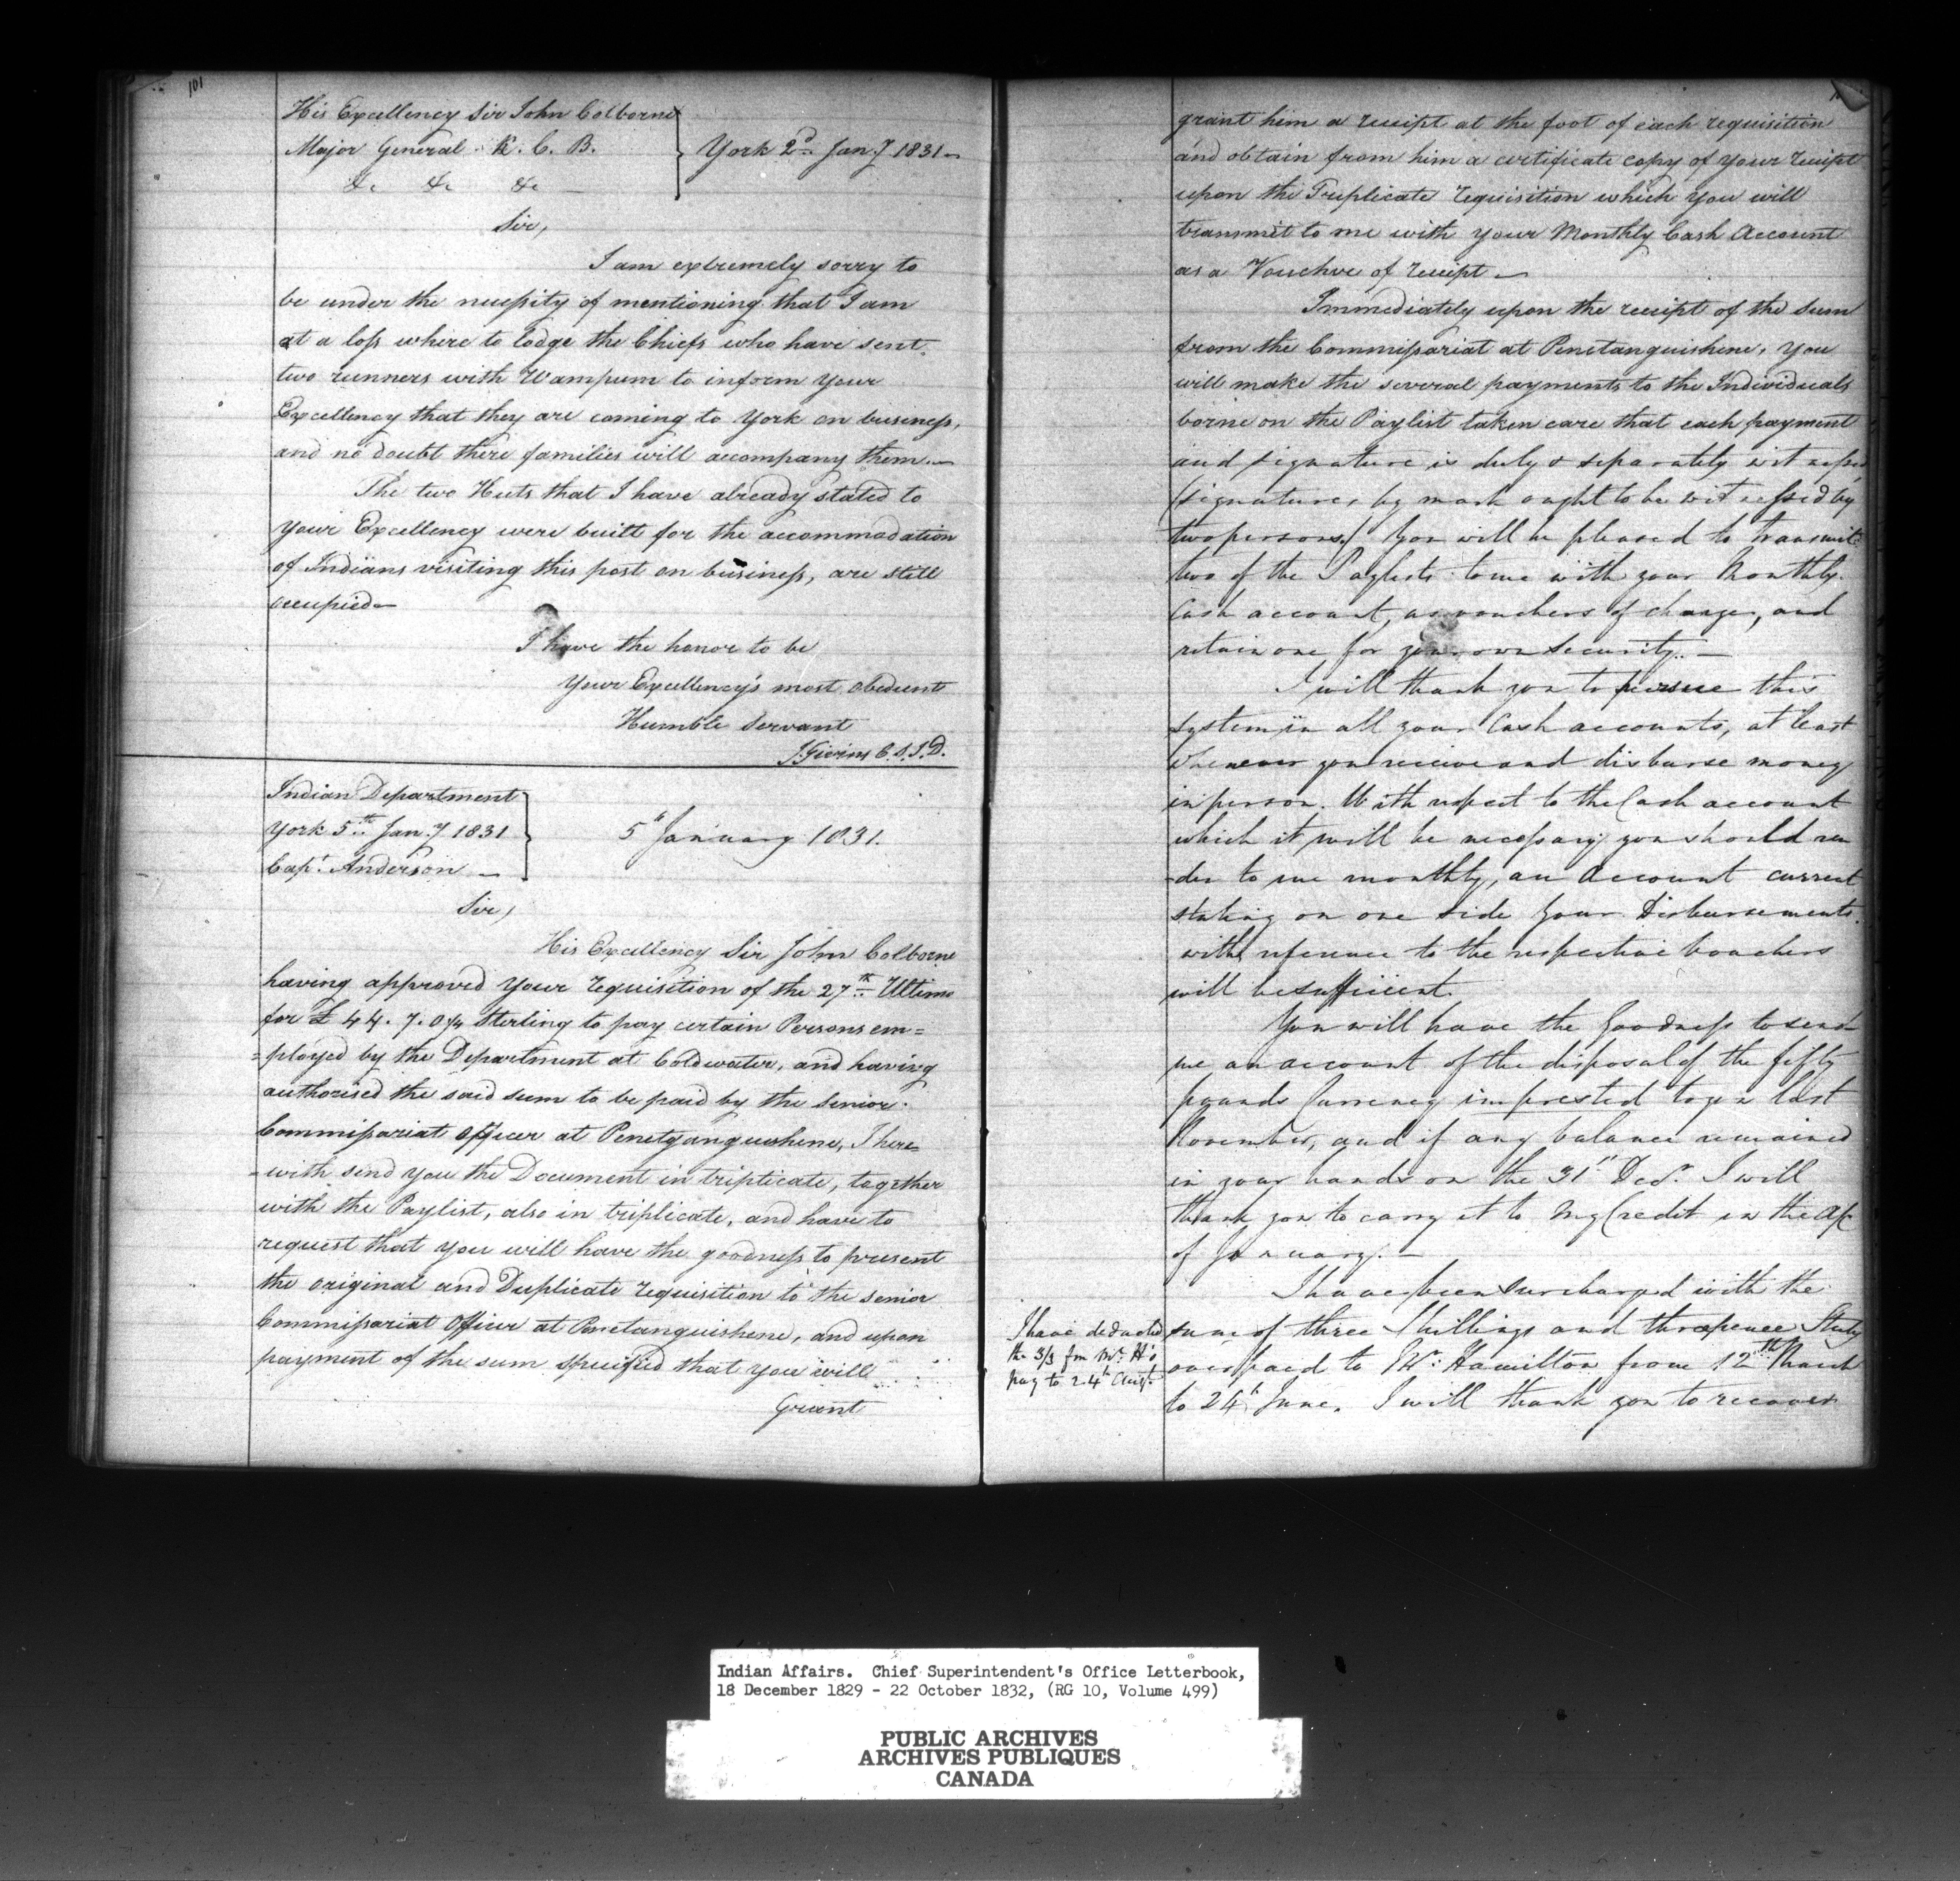 101
His Excellency Sir John Colborne
Major General K. C. B.
&c &c &c
York 2d Jany 1831
Sir,
I am extremely sorry to
be under the necessity of mentioning that I am
at a loss where to lodge the Chiefs who have sent
two runners with Wampum to inform your
Excellency that they are coming to York on business,
and no doubt there families will accompany them.
The two Huts that I have already stated to
your Excellency were built for the accommodation
of Indians visiting this post on business, are still
occupied
I have the honor to be
Your Excellency's most obedient
Humble Servant
J. Givins C.S.I.D.
Indian Department
York 5th Jany 1831
Capt. Anderson
5th January 1831.
Sir,
His Excellency Sir John Colborne
having approved your requisition of the 27th Ultimo
for £44.7.0¾ Sterling to pay certain Persons em=
=ployed by the Department at Coldwater, and having
authorised the said sum to be paid by the Senior
Commissariat officer at Penetganguishene, I here=
=with send you the Document in triplicate, together
with the Paylist, also in triplicate, and have to
request that you will have the goodness to present
the original and Duplicate requisition to the senior
Commissariat Officer at Penetanguishene, and upon
payment of the sum specified that you will
Grant
grant him a receipt at the foot of each requisition
and obtain from him a certificate copy of your receipt
upon the Truplicate requisition which you will
transmit to me with your Monthly Cash Account
as a Vouchre of receipt
Immediately upon the receipt of the sum
from the Commissariat at Penetanguishene, you
will make the several payments to the Individuals
borne on the Paylist taken care that each payment
and signature is duly & separately witnessed
(signatures by mark ought to be witnessed by
two persons) You will be pleased to transmit
two of the Paylists to me with your Monthly
Cash account, as vouchers of charges, and
retain one for your own security.
I will thank you to pursue this
system in all your Cash accounts, at least
whenever you receive and disburse money
in person. With respect to the Cash account
which it will be necessary you should ren
-der to me monthly, an Account current
stating on one side your Disbursements
with reference to the respective vouchers
will be sufficient.
You will have the Goodness to send
me an account of the disposal of the fifty
pounds Currency imprested to you last
November, and if any balance remained
in your hands on the 31st Decr. I will
thank you to carry it to my Credit in the A/c
of January.
I have been surcharged with the
sum of three Shillings and threepence Sterlg
over paid to Mr. Hamilton from 12th March
to 24th June. I will thank you to recover
I have deducted
the 3/3 fm Mr. H's
pay to 24th Augt.
Indian Affairs. Chief Superintendent's Office Letterbook,
18 December 1829 - 22 October 1832, (RG 10, Volume 499)
PUBLIC ARCHIVES
ARCHIVES PUBLIQUES
CANADA